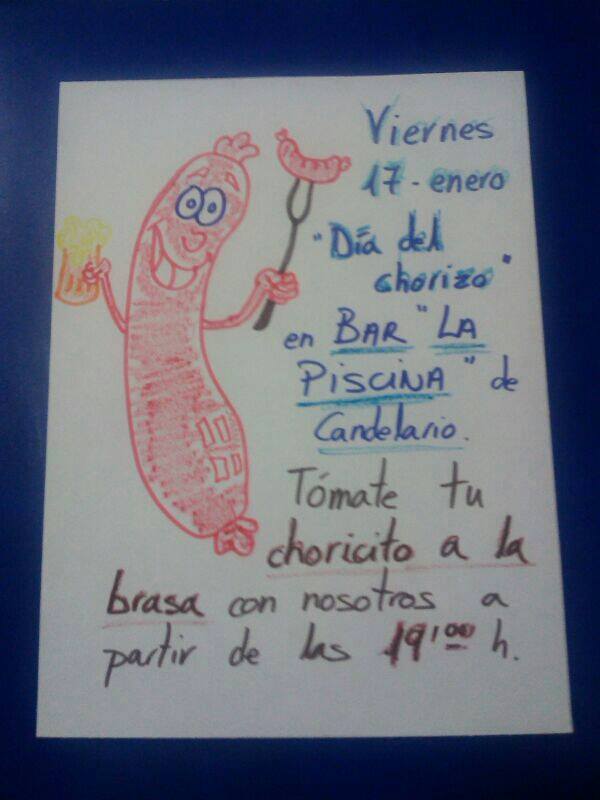 Viernes
17 - enero
"Día del
chorizo"
en BAR "LA
PISCINA" de
Candelario.
Tómate tu
choricito a la
brasa con nosotros a
partir de las 19'00 h.